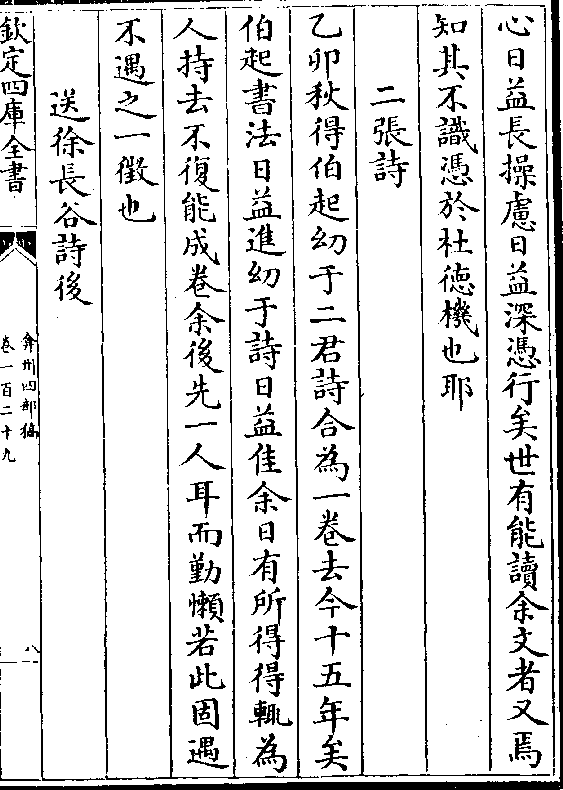 心日益長操慮日益深憑行矣世有能讀余文者又焉
知其不識憑於杜德機也耶
二張詩
乙卯秋得伯起幼于二君詩合為一卷去今十五年矣
伯起書法日益進幼于詩日益佳余日有所得得輒為
人持去不復能成卷余後先一人耳而勤懶若此固遇
不遇之一徵也
送徐長谷詩後
欽定四庫全書
弇州四部稿
卷一百二十九
八